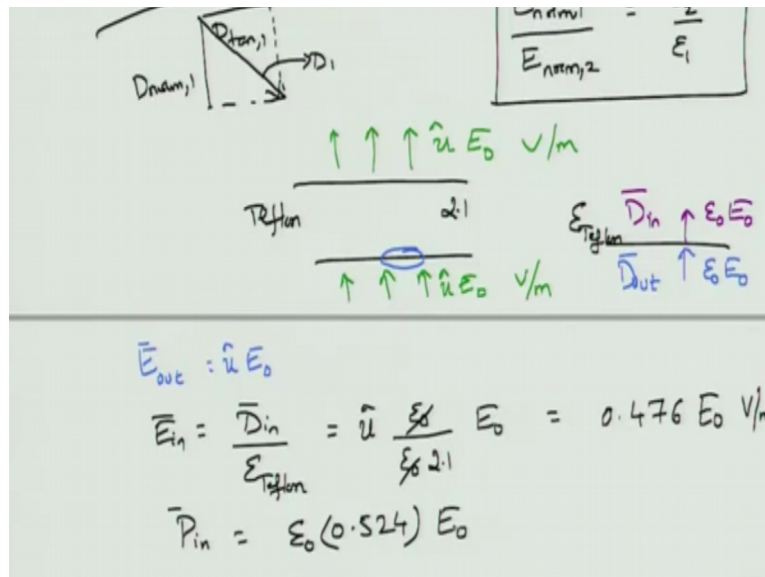 D̄tan,1
Dnorm,1
D1
Enorm,2
ε1
û E0 V/m
Teflon 2.1
û E0 V/m
εTeflon D̄in ε0 E0
D̄out ε0 E0
Ēout : û E0
Ēin = D̄in / εTeflon = û ε0 / ε0 2.1 E0 = 0.476 E0 V/
P̄in = ε0 (0.524) E0